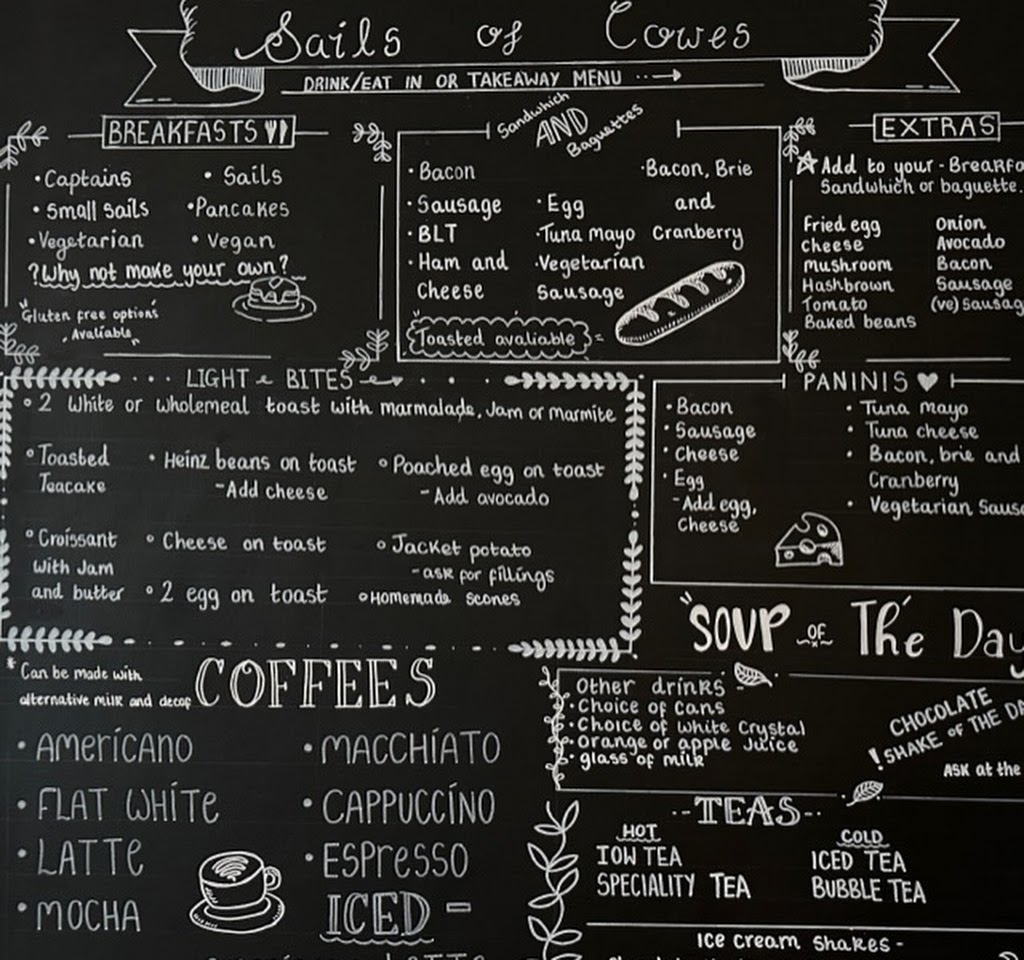 Sails of Cowes
DRINK/EAT IN OR TAKEAWAY MENU
BREAKFASTS
• Captains
• Sails
• Small Sails
• Pancakes
• Vegetarian
• Vegan
? Why not make your own?
"Gluten free options
Avaliable"
Sandwhich
AND
Baguettes
• Bacon
• Bacon, Brie
and
Cranberry
• Sausage
• Egg
• BLT
• Tuna mayo
• Ham and
Cheese
• Vegetarian
Sausage
"Toasted avaliable"
EXTRAS
Add to your - Breakfa
Sandwhich or baguette.
Fried egg
Onion
cheese
Avocado
mushroom
Bacon
Hashbrown
Sausage
Tomato
(ve) Sausag
Baked beans
LIGHT BITES
• 2 white or wholemeal toast with marmalade, Jam or Marmite
• Toasted
Teacake
• Heinz beans on toast
- Add cheese
• Poached egg on toast
- Add avocado
• Croissant
with Jam
and butter
• Cheese on toast
• Jacket potato
- ask for fillings
• 2 egg on toast
• Homemade scones
PANINIS
• Bacon
• Sausage
• Cheese
• Egg
- Add egg,
Cheese
• Tuna mayo
• Tuna cheese
• Bacon, brie and
Cranberry
• Vegetarian Saus
"SOUP OF The Day
* Can be made with
alternative milk and decaf
COFFEES
• AMERICANO
• MACCHIATO
• FLAT WHITE
• CAPPUCCINO
• LATTE
• ESPRESSO
• MOCHA
ICED -
LATTE
Other drinks -
• Choice of cans
• Choice of white Crystal
• Orange or apple Juice
• glass of milk
CHOCOLATE
! SHAKE OF THE DA
ASK at the
TEAS
HOT
IOW TEA
SPECIALITY TEA
COLD
ICED TEA
BUBBLE TEA
Ice cream Shakes -